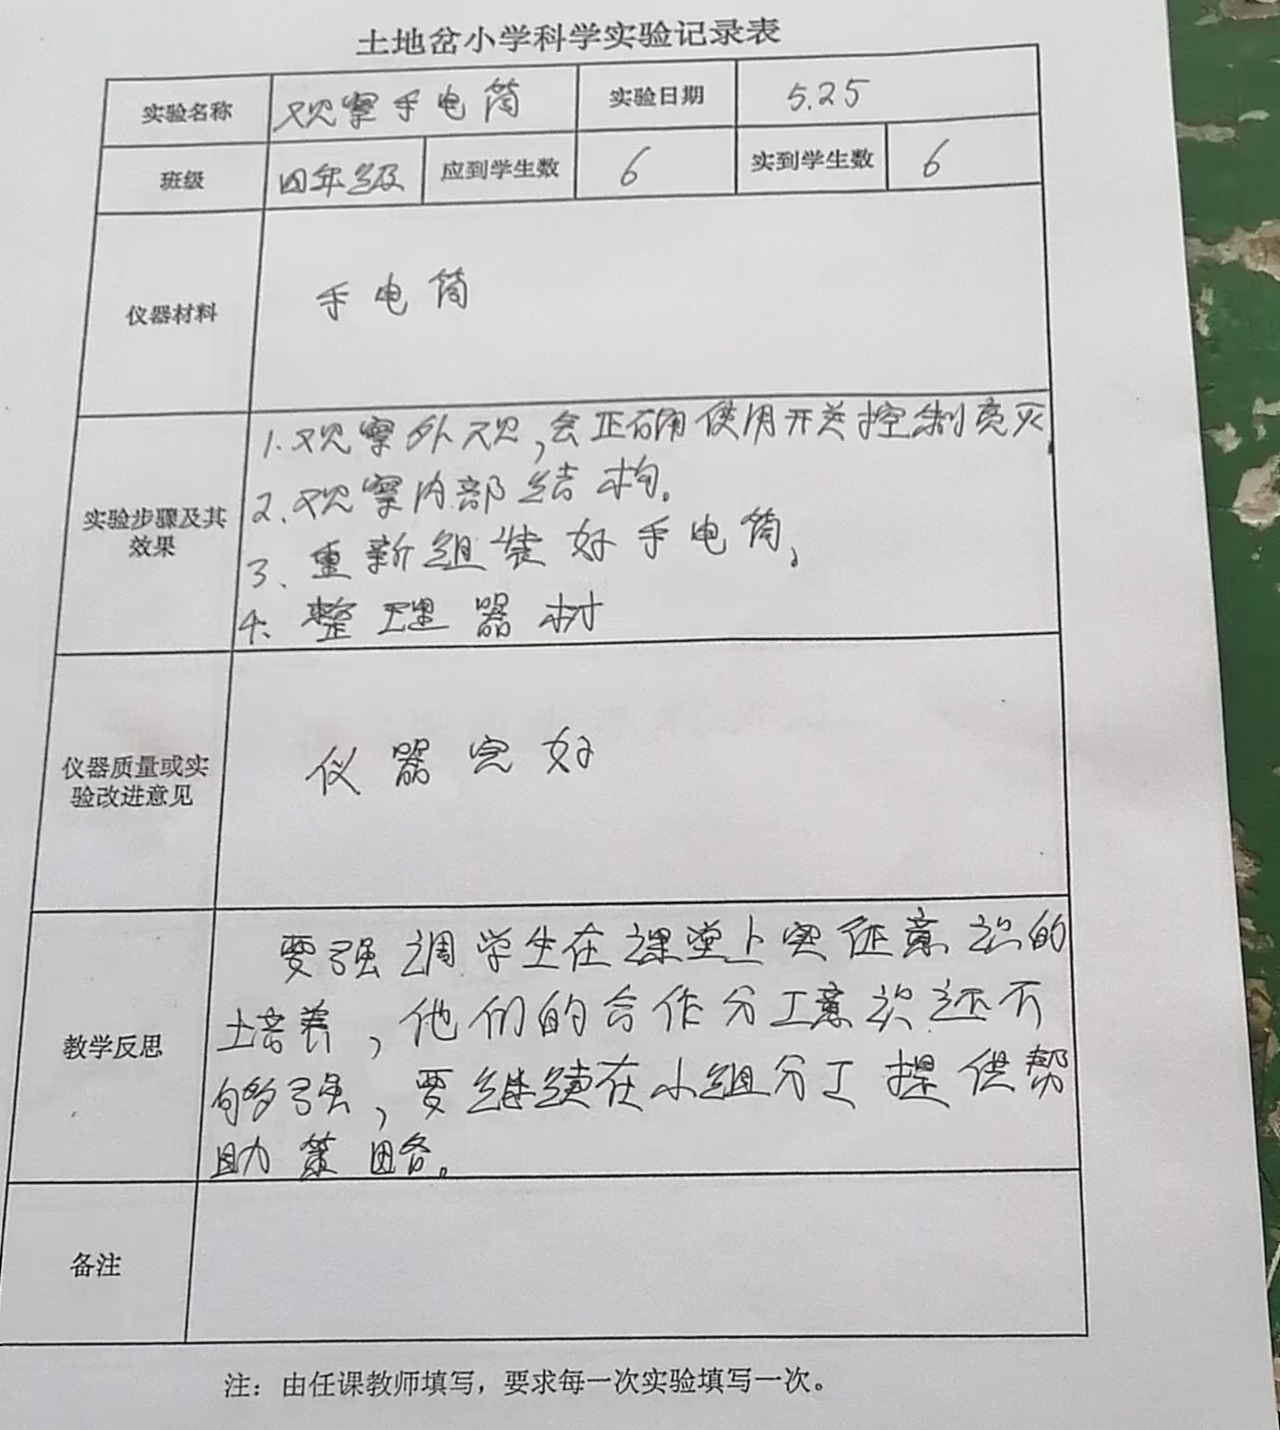 土地岔小学科学实验记录表
实验名称 观察手电筒 实验日期 5.25
班级 四年级 应到学生数 6 实到学生数 6
仪器材料 手电筒
1.观察外观,会正确使用开关控制亮灭
2、观察内部结构。
实验步骤及其
效果
3、重新组装好手电筒。
4、整理器材
仪器质量或实
验改进意见
仪器完好
要强调学生在课堂上实证意识的
培养,他们的合作分工意识还不
教学反思
够强,要继续在小组分工提供帮
助策略。
备注
注：由任课教师填写，要求每一次实验填写一次。